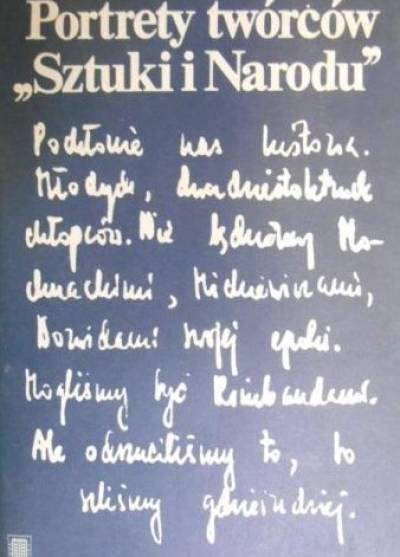 Portrety twórców
„Sztuki i Narodu”
Podetnie nas historia.
Młodych, dwudziestoletnich
chłopców. Nie będziemy Mo-
chnackimi, Mickiewiczami,
Dawidami swojej epoki.
Mogliśmy być Rimbaudami.
Ale odrzuciliśmy to, bo
szliśmy gdzieindziej.